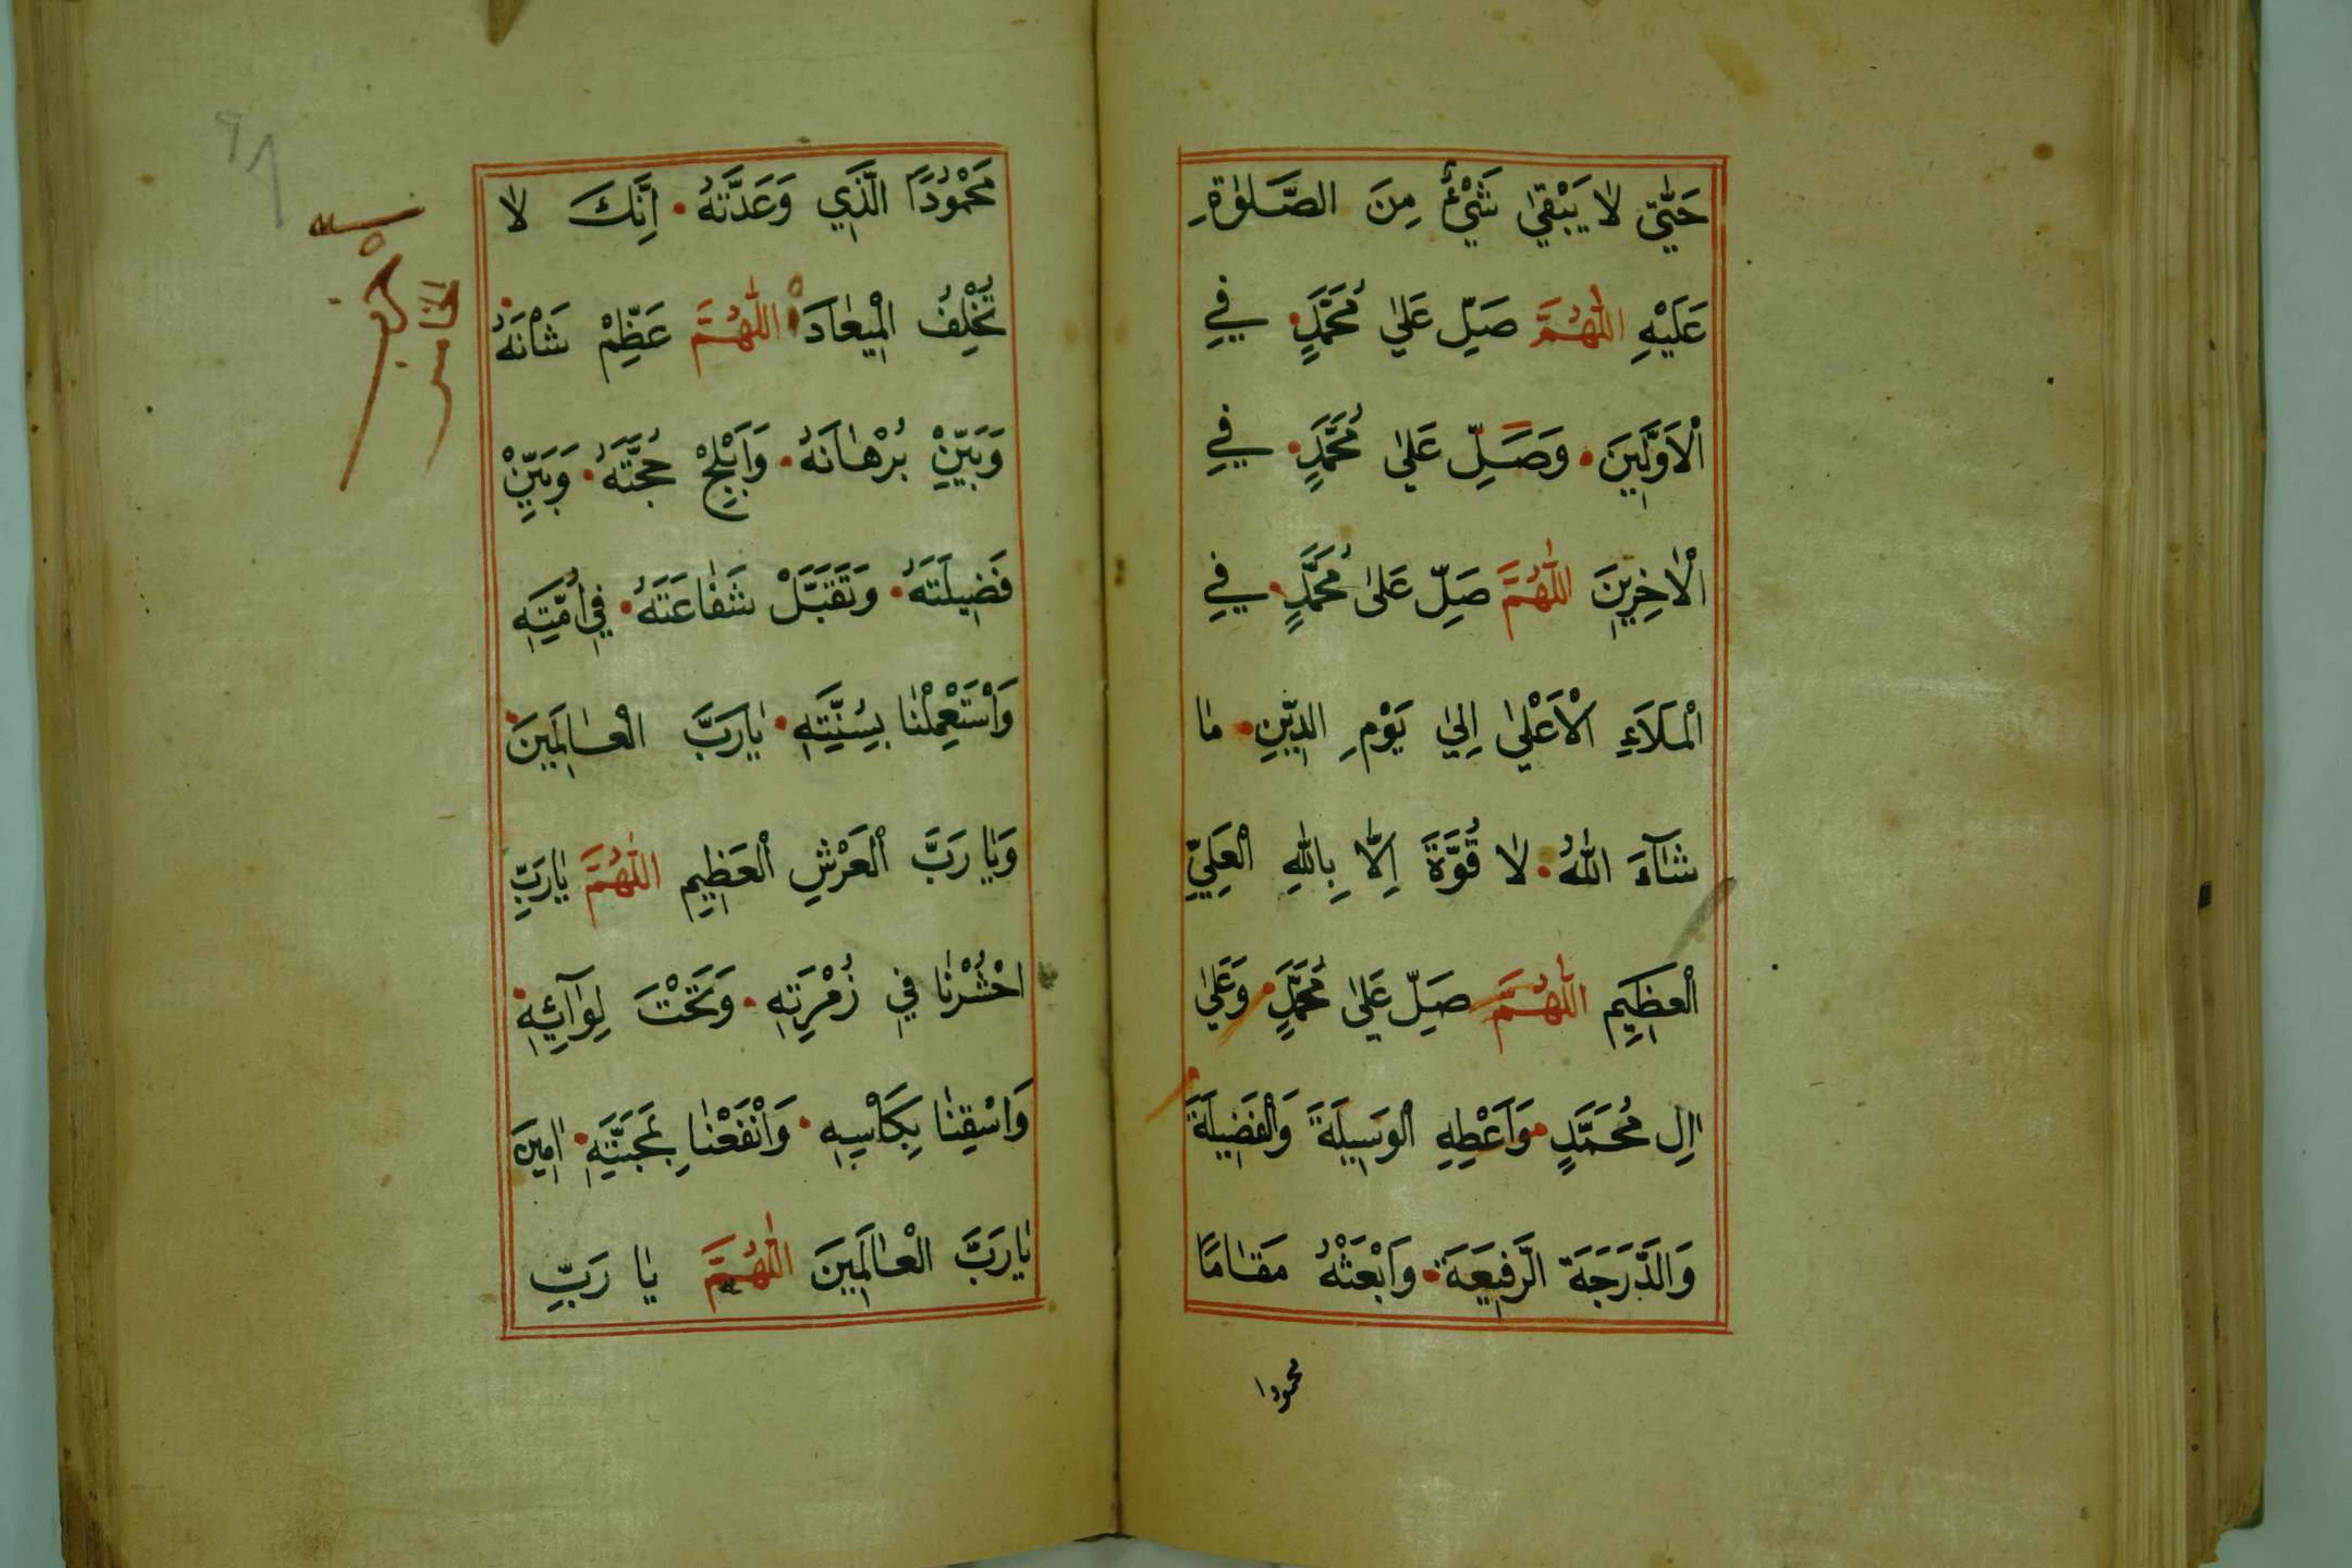 حَتّٰي لَا يَبْقٰي شَيْءٌ مِنَ الصَّلٰوةِ
عَلَيْهِ اَللّٰهُمَّ صَلِّ عَلٰي مُحَمَّدٍ فِي
الْاَوَّلِينَ وَصَلِّ عَلٰي مُحَمَّدٍ فِي
الْاٰخِرِينَ اَللّٰهُمَّ صَلِّ عَلٰى مُحَمَّدٍ فِي
الْمَلَاءِ الْاَعْلٰي اِلٰي يَوْمِ الدِّينِ مٰا
شٰآءَ اللّٰهُ لٰا قُوَّةَ اِلّٰا بِاللّٰهِ الْعَلِيِّ
الْعَظِيمِ اَللّٰهُمَّ صَلِّ عَلٰى مُحَمَّدٍ وَعَلٰي
اٰلِ مُحَمَّدٍ وَاَعْطِهِ الْوَسِيلَةَ وَالْفَضِيلَةَ
وَالدَّرَجَةَ الرَّفِيعَةَ وَابْعَثْهُ مَقٰامًا
محمودا
مَحْمُودًا الَّذِي وَعَدَّتَهُ اِنَّكَ لٰا
تُخْلِفُ الْمِيعٰادَ اَللّٰهُمَّ عَظِّمْ شَأْنَهُ
وَبَيِّنْ بُرْهٰانَهُ وَاَبْلِجْ حُجَّتَهُ وَبَيِّنْ
فَضِيلَتَهُ وَتَقَبَّلْ شَفٰاعَتَهُ فِي اُمَّتِهِ
وَاسْتَعْمِلْنٰا بِسُنَّتِهِ يٰا رَبَّ الْعٰالَمِينَ
وَيٰا رَبَّ الْعَرْشِ الْعَظِيمِ اَللّٰهُمَّ يٰا رَبِّ
احْشُرْنٰا فِي زُمْرَتِهِ وَتَحْتَ لِوٰآئِهِ
وَاسْقِنٰا بِكَأْسِهِ وَانْفَعْنٰا بِمَحَبَّتِهِ اٰمِينَ
يٰا رَبَّ الْعٰالَمِينَ اَللّٰهُمَّ يٰا رَبِّ
٩٨